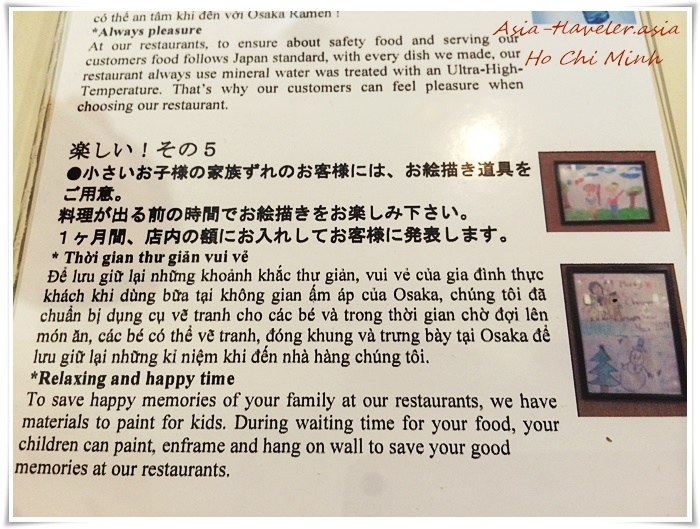 có thể an tâm khi đến với Osaka Ramen !
*Always pleasure
At our restaurants, to ensure about safety food and serving our
customers food follows Japan standard, with every dish we made, our
restaurant always use mineral water was treated with an Ultra-High-
Temperature. That's why our customers can feel pleasure when
choosing our restaurant.
Asia-Traveler.asia
Ho Chi Minh
楽しい！その５
●小さいお子様の家族ずれのお客様には、お絵描き道具を
ご用意。
料理が出る前の時間でお絵描きをお楽しみ下さい。
１ヶ月間、店内の額にお入れしてお客様に発表します。
* Thời gian thư giản vui vẻ
Để lưu giữ lại những khoảnh khắc thư giản, vui vẻ của gia đình thực
khách khi dùng bữa tại không gian ấm áp của Osaka, chúng tôi đã
chuẩn bị dụng cụ vẽ tranh cho các bé và trong thời gian chờ đợi lên
món ăn, các bé có thể vẽ tranh, đóng khung và trưng bày tại Osaka để
lưu giữ lại những kỉ niệm khi đến nhà hàng chúng tôi.
*Relaxing and happy time
To save happy memories of your family at our restaurants, we have
materials to paint for kids. During waiting time for your food, your
children can paint, enframe and hang on wall to save your good
memories at our restaurants.